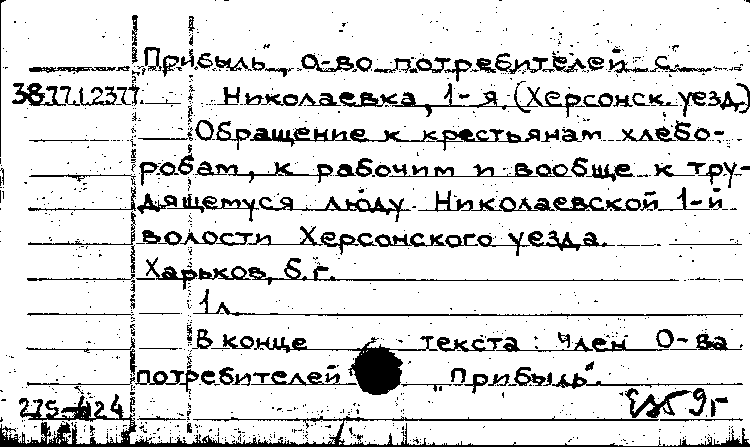 "Прибыль", О-во потребителей с.
38.77.1.2377. Николаевка, 1-я. (Херсонск. уезд.)
Обращение к крестьянам хлебо-
робам, к рабочим и вообще к тру-
дящемуся люду Николаевской 1-й
волости Херсонского уезда.
Харьков, б.г.
1 л.
В конце текста: член О-ва
потребителей „Прибыль".
275-424 9г